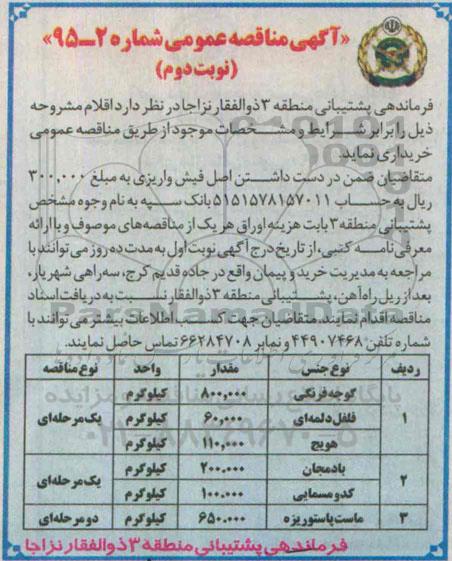 «آگهی مناقصه عمومی شماره ۲ـ۹۵»
(نوبت دوم)
فرماندهی پشتیبانی منطقه ۳ ذوالفقار نزاجا در نظر دارد اقلام مشروحه
ذیل را برابر شرایط و مشخصات موجود از طریق مناقصه عمومی
خریداری نماید.
متقاضیان ضمن در دست داشتن اصل فیش واریزی به مبلغ ۳۰۰,۰۰۰
ریال به حساب ۵۱۵۱۵۷۸۱۵۷۰۱۱ بانک سپه به نام وجوه مشخص
پشتیبانی منطقه ۳ بابت هزینه اوراق هر یک از مناقصه‌های موصوف و با ارائه
معرفی نامه کتبی، از تاریخ درج آگهی نوبت اول به مدت ده روز می‌توانند با
مراجعه به مدیریت خرید و پیمان واقع در جاده قدیم کرج، سه‌راهی شهریار،
بعد از ریل راه‌آهن، پشتیبانی منطقه ۳ ذوالفقار نسبت به دریافت اسناد
مناقصه اقدام نمایند. متقاضیان جهت کسب اطلاعات بیشتر می‌توانند با
شماره تلفن ۴۴۹۰۷۴۶۸ و نمابر ۶۶۲۸۴۷۰۸ تماس حاصل نمایند.
ردیف نوع جنس مقدار واحد نوع مناقصه
گوجه فرنگی ۸۰۰,۰۰۰ کیلوگرم
۱ فلفل دلمه‌ای ۶۰,۰۰۰ کیلوگرم یک مرحله‌ای
هویج ۱۱۰,۰۰۰ کیلوگرم
۲ بادمجان ۲۰۰,۰۰۰ کیلوگرم یک مرحله‌ای
کدو مسمایی ۱۰۰,۰۰۰ کیلوگرم
۳ ماست پاستوریزه ۶۵۰,۰۰۰ کیلوگرم دو مرحله‌ای
فرماندهی پشتیبانی منطقه ۳ ذوالفقار نزاجا